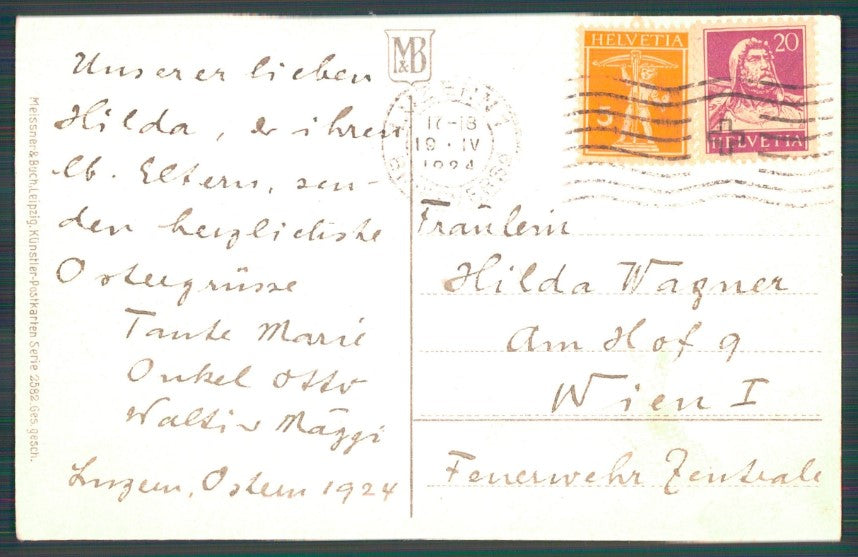 Unserer lieben
Hilda, & ihren
lb. Eltern, sen-
den herzlichste
Ostergrüsse
Tante Marie
Onkel Otto
Mäggi
Luzern, Ostern 1924
Meissner & Buch, Leipzig. Künstler-Postkarten Serie 2582. Ges. gesch.
M&B
17-18
19·IV
1924
HELVETIA
5
20
HELVETIA
Fräulein
Hilda Wagner
Am Hof 9
Wien I
Feuerwehr Zentrale